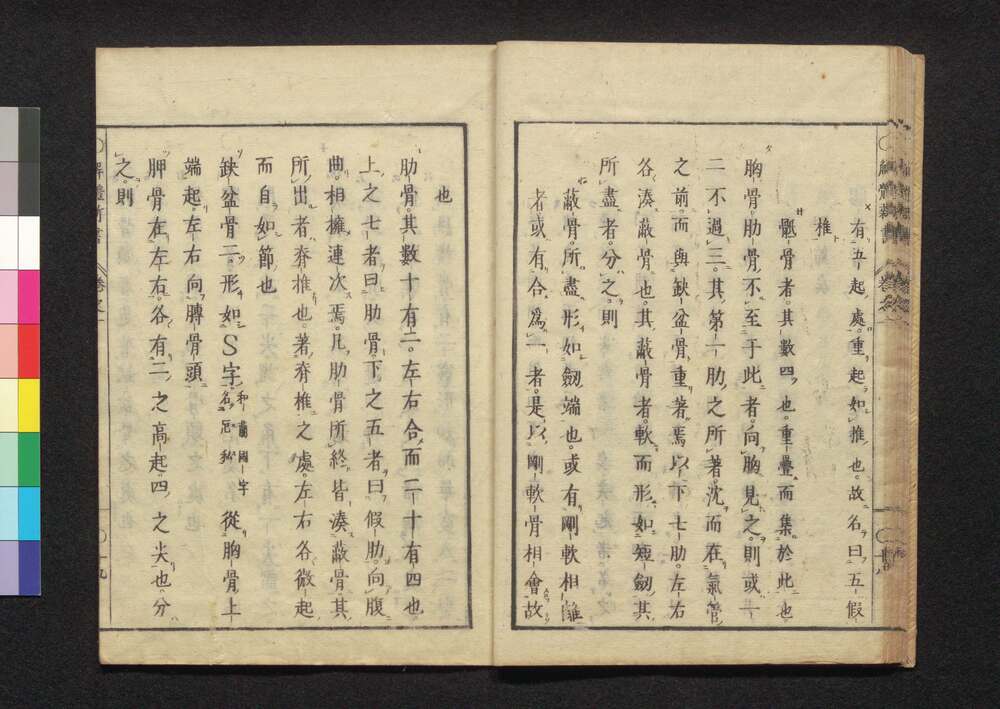 有五起處重起如椎也故名曰五假
椎
骶骨者其數四也重疊而集於此也
胸骨肋骨不至于此者向胸見之則或一
二不過三其第一肋之所著沈而在氣管
之前而與缺盆骨重著焉以下七肋左右
各湊蔽骨也其蔽骨者軟而形如短劒其
所盡者分之則
蔽骨所盡形如劒端也或有剛軟相離
者或有合為一者是以剛軟骨相會故
也
肋骨其數十有二左右合而二十有四也
上之七者曰肋骨下之五者曰假肋向腹
曲相擁連次焉凡肋骨所終皆湊蔽骨其
所出者脊椎也著脊椎之處左右各微起
而自如節也
缺盆骨二形如S字和蘭國字名 從胸骨上
端起左右向膊骨頭
胛骨在左右各有三之高起四之尖也分
之則
解體新書 卷之一
十九